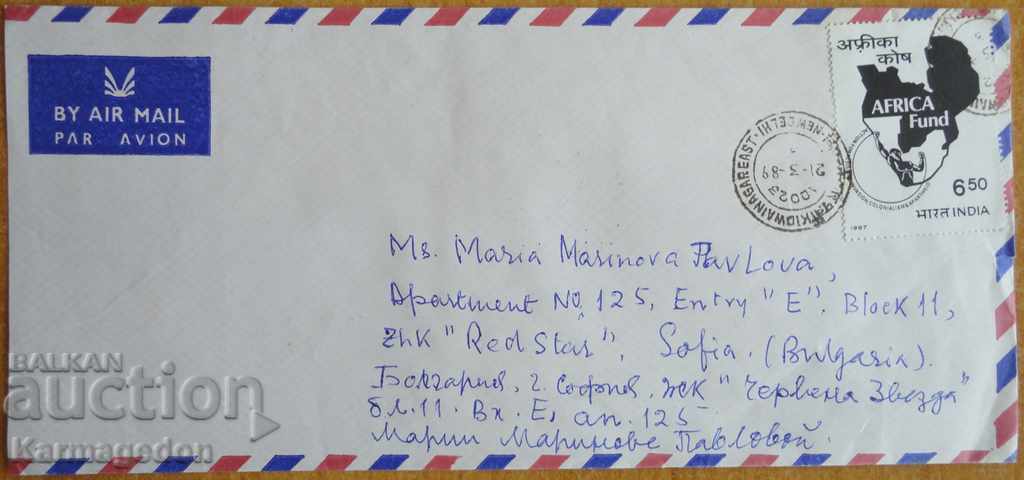 BY AIR MAIL
PAR AVION
अफ़्रीका
कोष
AFRICA
Fund
6.50
भारत INDIA
1987
KIDWAI NAGAR EAST · NEW DELHI
21-3-89
Ms. Maria Marinova Pavlova,
Apartment No. 125, Entry "E", Block 11,
Zhk "Red Star", Sofia. (Bulgaria).
Болгария, г. София, жк "Червена Звезда"
бл. 11. Вх. Е, ап. 125
Марии Маринове Павловой.
BALKAN
auction
Karmagedon